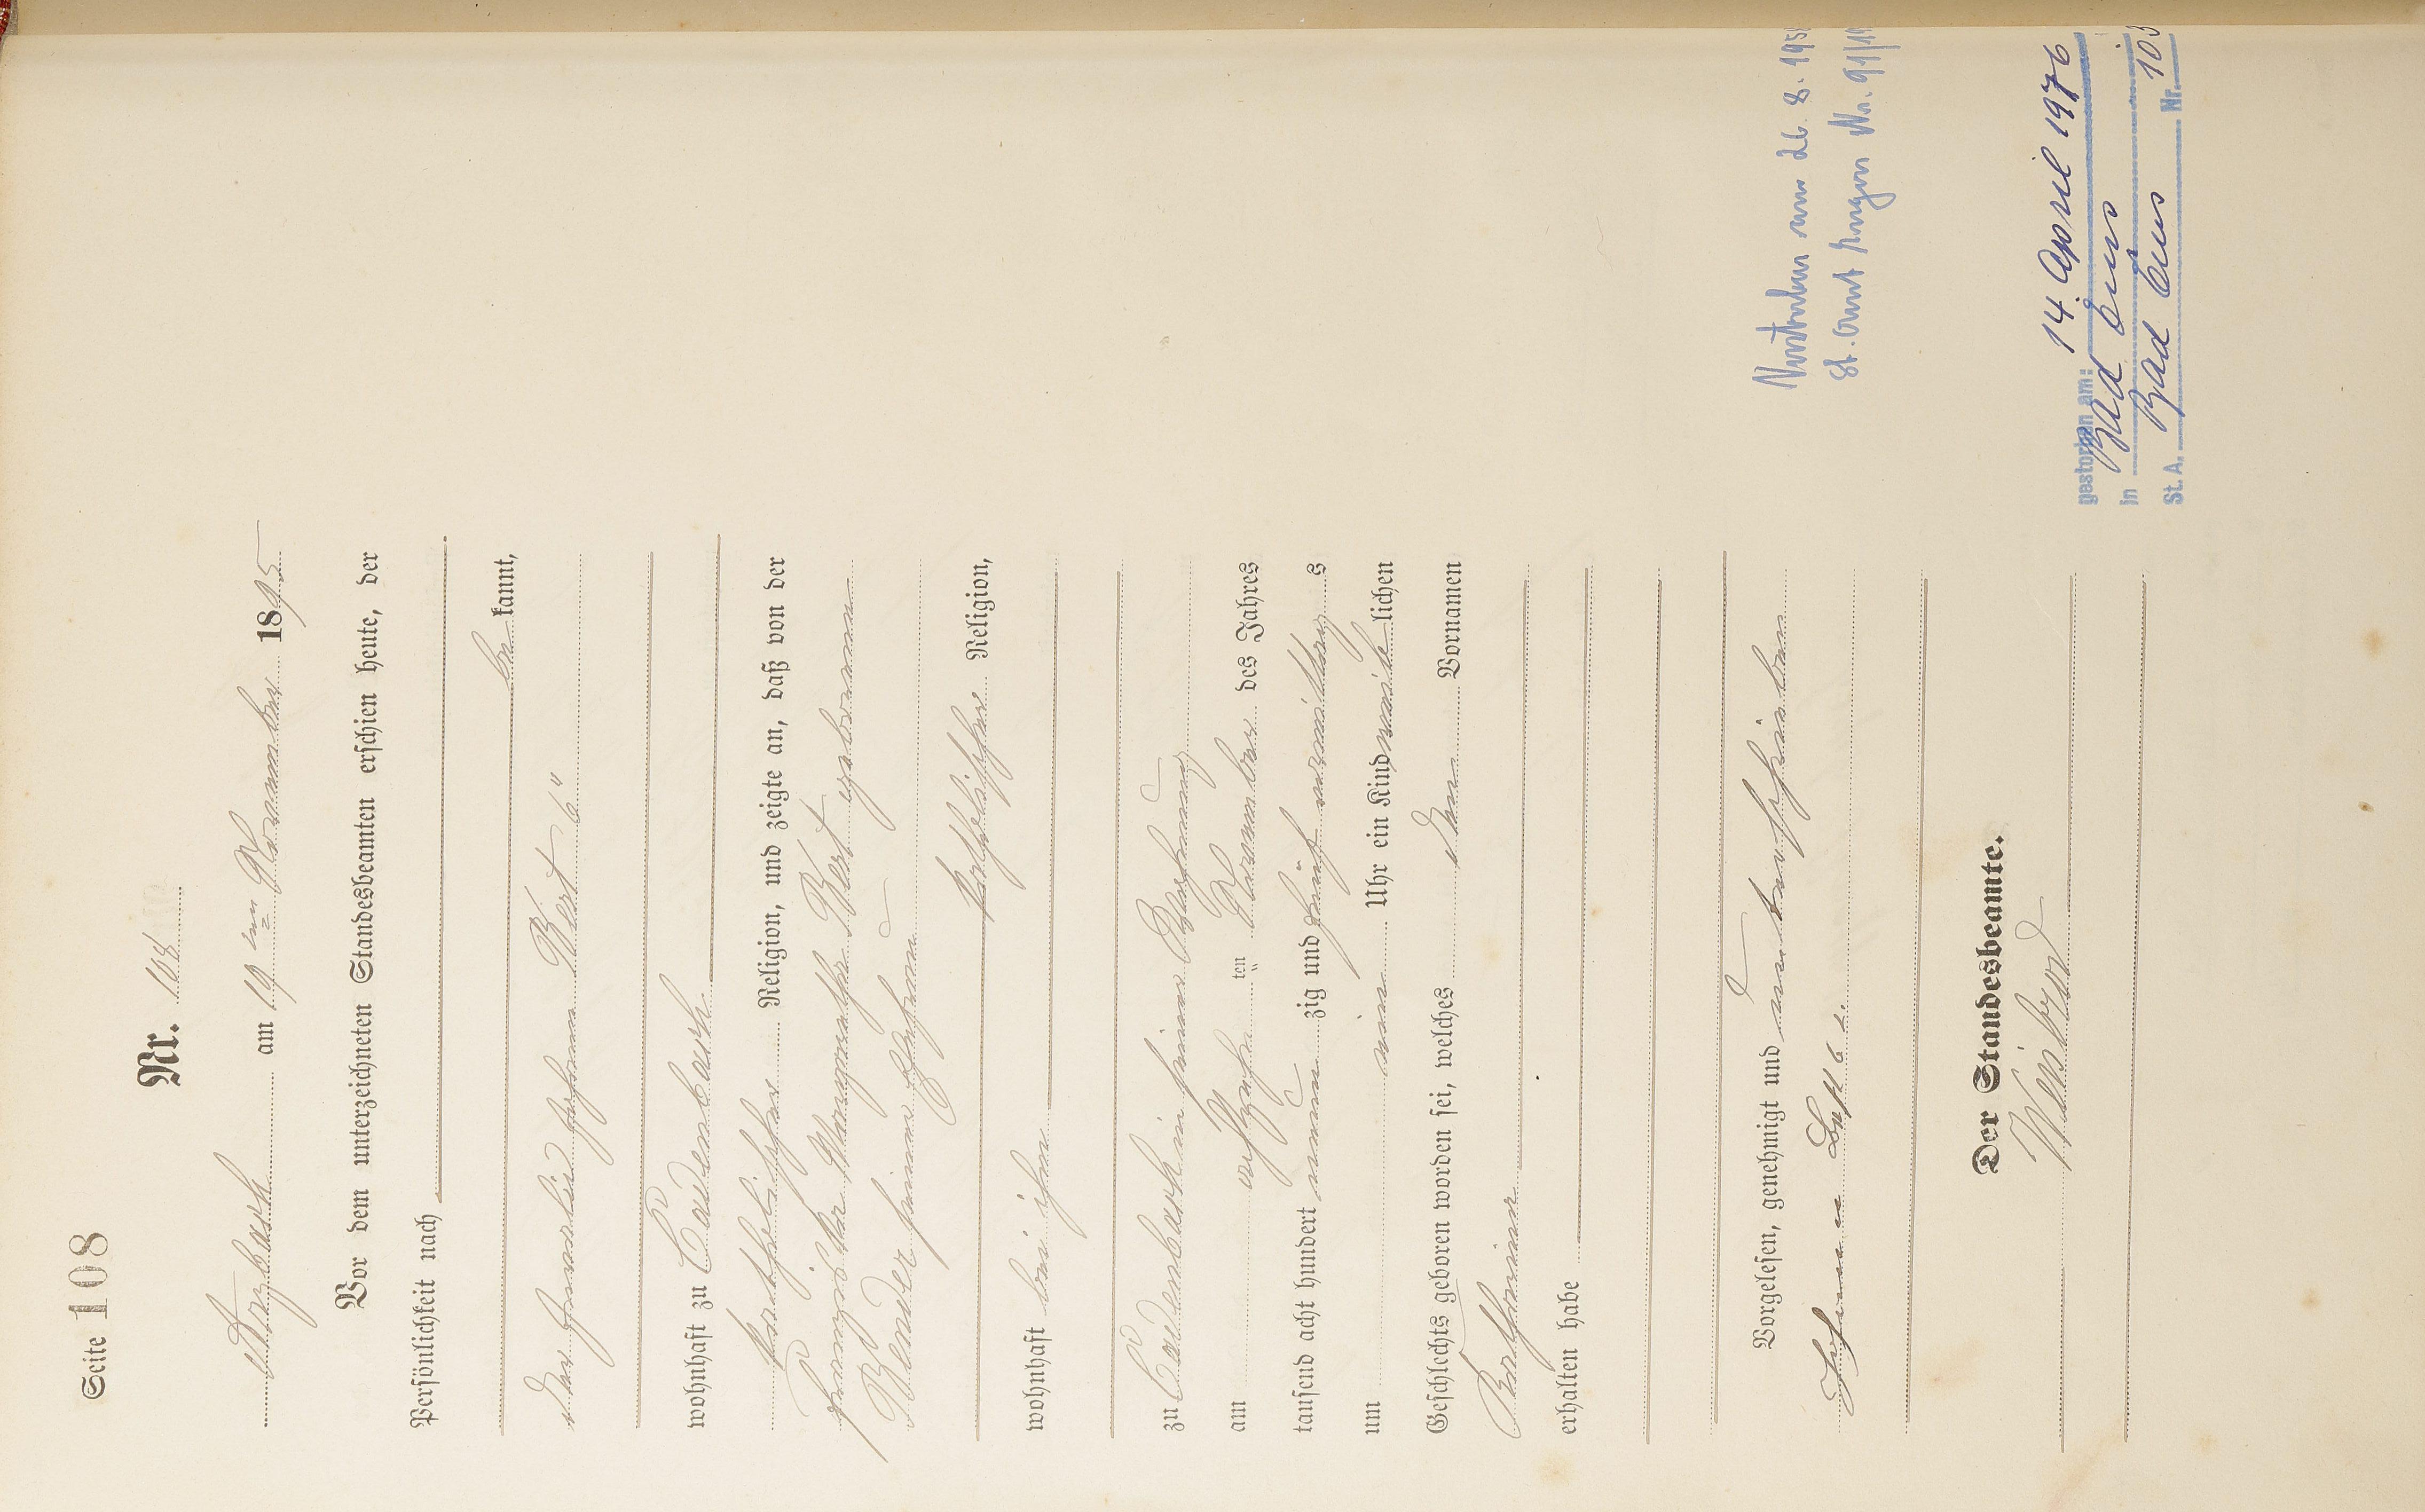 Seite 108
Nr. 108
Arzbach am 19ten November 1895
Vor dem unterzeichneten Standesbeamten erschien heute, der
Persönlichkeit nach
be kannt,
der Invalid Johann Bert 6ʺ
wohnhaft zu Cadenbach
katholischer Religion, und zeigte an, daß von der
Bert geborenen
Bender seiner Ehefrau
katholischer Religion,
wohnhaft bei ihm
zu Cadenbach in seiner Wohnung
am achtzehn ten November des Jahres
tausend acht hundert neun zig und fünf vormittag s
um ein Uhr ein Kind weib lichen
Geschlechts geboren worden sei, welches den Vornamen
Katharina
erhalten habe
Vorgelesen, genehmigt und unterschrieben
Johann
Der Standesbeamte.
Weisbrod
Verstorben am 26. 8. 195
St. Amt Nr. 91/19
gestorben am: 14. April 1976
in Bad Ems
St. A. Bad Ems Nr. 105